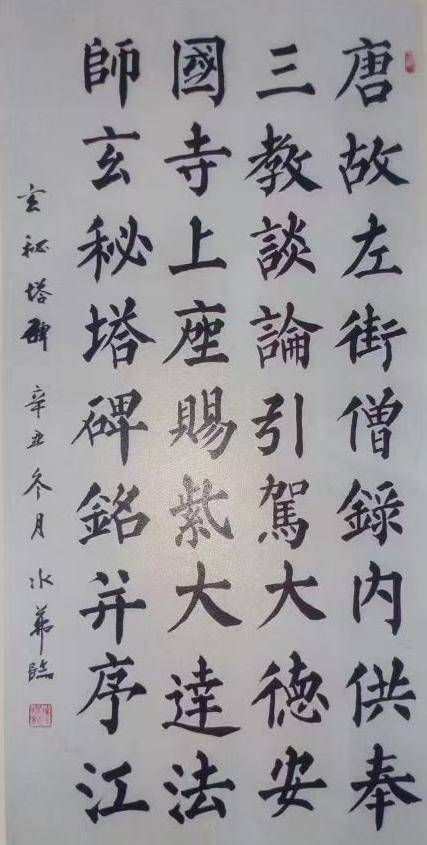 唐故左街僧錄內供奉
三教談論引駕大德安
國寺上座賜紫大達法
師玄秘塔碑銘并序江
玄秘塔碑 辛丑冬月 水華臨